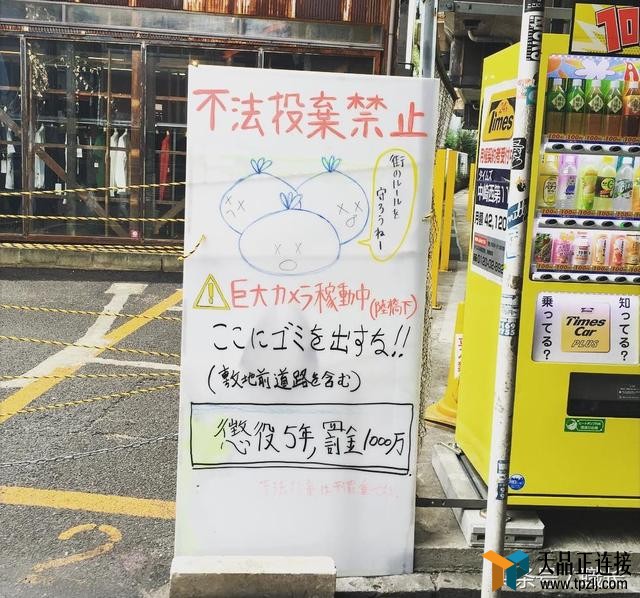 不法投棄禁止
街のルールを
守ろうねー
巨大カメラ稼動中(陸橋下)
ここにゴミを出すな!!
(敷地前道路を含む)
懲役5年,罰金1000万
10
Times
タイムズ
中崎西第17
月額42,120
乗ってる?
知ってる?
Times
Car
PLUS
2
天品正连接
www.tpzlj.com